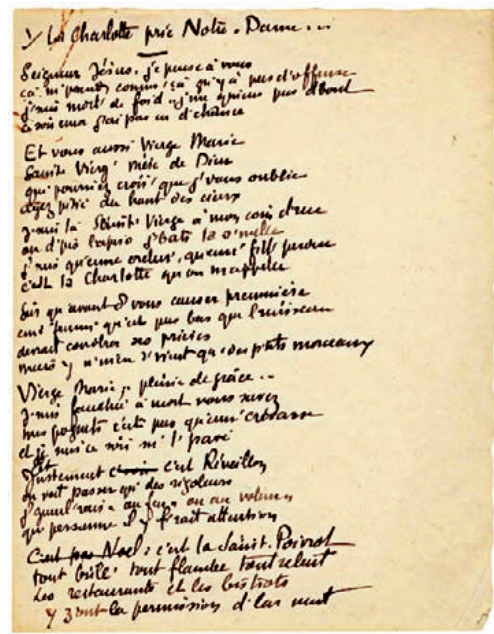 La Charlotte prie Notre-Dame...
Seigneur Jésus. je pense à vous
ça m'prend comm' ça qu'y a pas d'offense
j'suis mort' de froid j'me quiens pus d'bout
ce soir encor j'ai pas eu d'chance
Et vous aussi Vierge Marie
Sainte Vierg' mère de Dieu
qui pourriez croir' que j'vous oublie
ayez pitié du haut des cieux
J'suis là Sainte Vierge à mon coin d'rue
où d'pis l'apéro j'bats la s'melle
j'suis qu'eune ordur', qu'eun' fill' perdue
c'est la Charlotte qu'on m'appelle
Sûr qu'avant d'vous causer preumière
eun' femm' qu'est pus bas que l'ruisseau
devrait conobrer ses prières
mais y m'en r'vient qu'des p'tits morceaux
Vierge Marie, pleine de grâce...
J'suis fauchée à mort vous savez
mes pognets c'est pus qu'eun' crevasse
et me v'là ce soir su' l'pavé
Justement c'est Réveillon
on voit passer qu'des rigoleurs
j'gueul'rais « au feu » ou au voleur
qu'personne il y f'rait attention
C'est pas Noël : c'est la Saint-Poivrot
tout brûle tout flambe tout reluit
Les restaurants et les bistrots
Y z'ont la permission d'la nuit